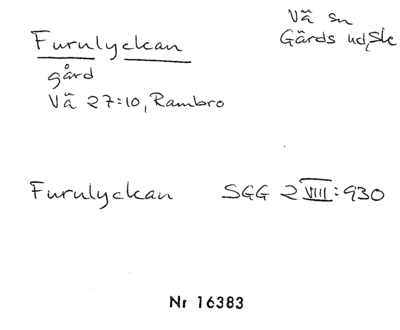 Vä sn
Gärds hd, Sk
Furulyckan
gård
Vä 27:10, Rambro
Furulyckan SGG 2 VIII:930
Nr 16383